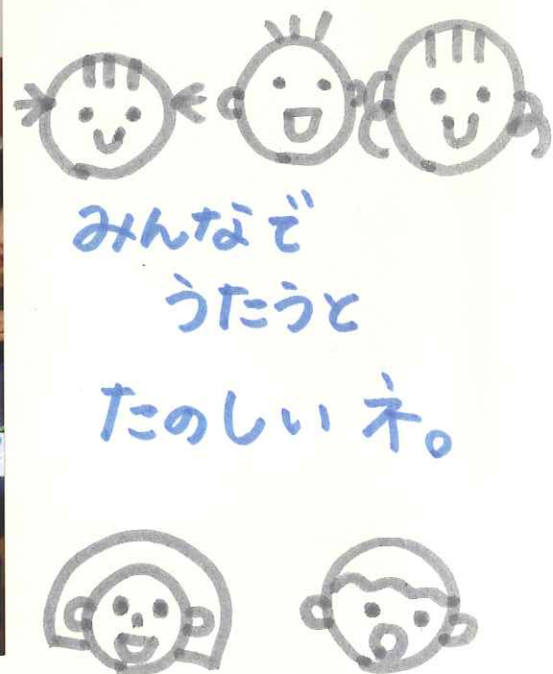 みんなで
うたうと
たのしいネ。